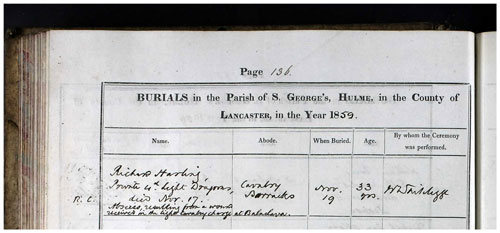 Page 136.
BURIALS in the Parish of S. GEORGE'S, HULME, in the County of
LANCASTER, in the Year 1859.
Name. Abode. When Buried. Age. By whom the Ceremony was performed.
Richard Harling,
Private 4th Light Dragoons, Cavalry Nov. 33
R.C. died Nov. 17. Barracks 19 yrs.
Abscess, resulting from a wound
received in the light cavalry charge at Balaclava.